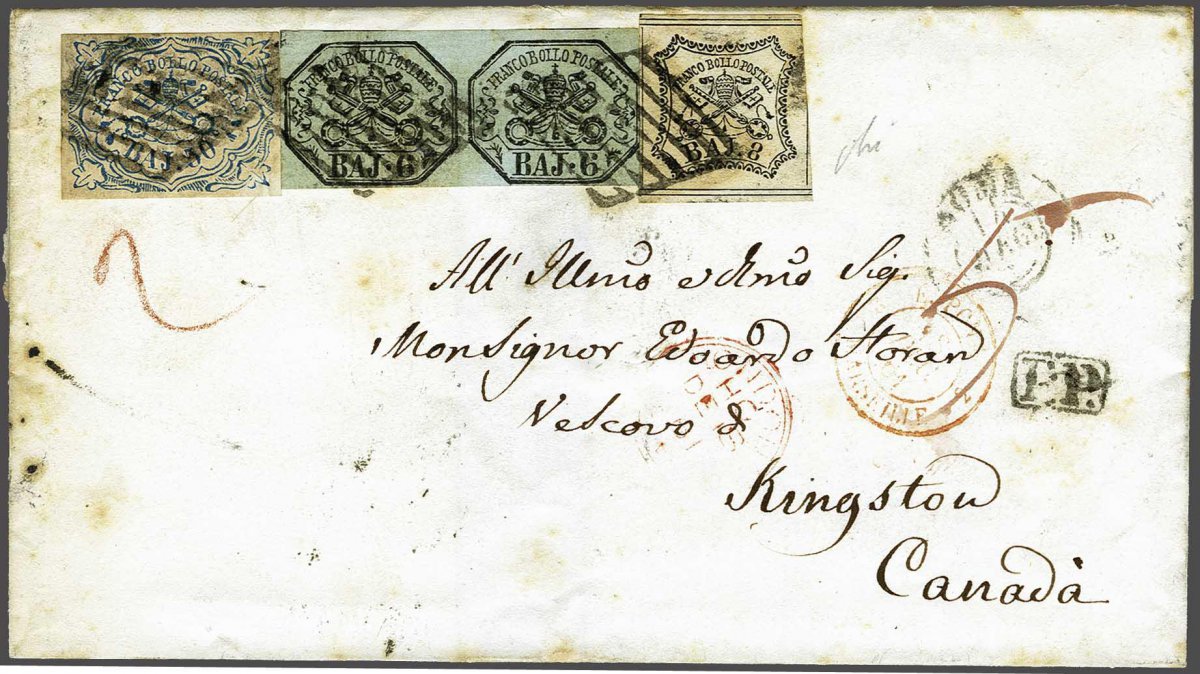 FRANCO BOLLO POSTALE
BAJ. 50
FRANCO BOLLO POSTALE
BAJ. 6
FRANCO BOLLO POSTALE
BAJ. 6
FRANCO BOLLO POSTALE
BAJ. 8
2
ROMA
All' Illmo e Rmo Sig.
Monsignor Edoardo Horan
Vescovo d
Kingston
Canadà
MARSEILLE
P.P.